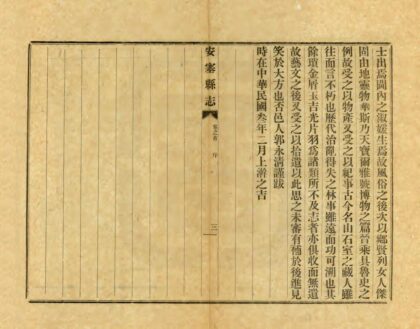 士出爲閫內之淑媛生爲故風俗之後次以鄉賢列女人傑
固由地靈物華斯乃天寶爾雅旋博物之篇晉乘具魯史之
例故受之以物產又受之以紀事古今名山石室之藏人雖
往而言不朽也歷代治亂得失之林事雖遠而功可溯也其
餘瓊金屑玉吉光片羽爲諸類所不及志者亦俱收而無遺
故藝文之後又受之以拾遺以此思之未審有補於後進見
笑於大方也否邑人郭永清謹跋
時在中華民國叁年二月上澣之吉
安塞縣志
卷之首 序
三